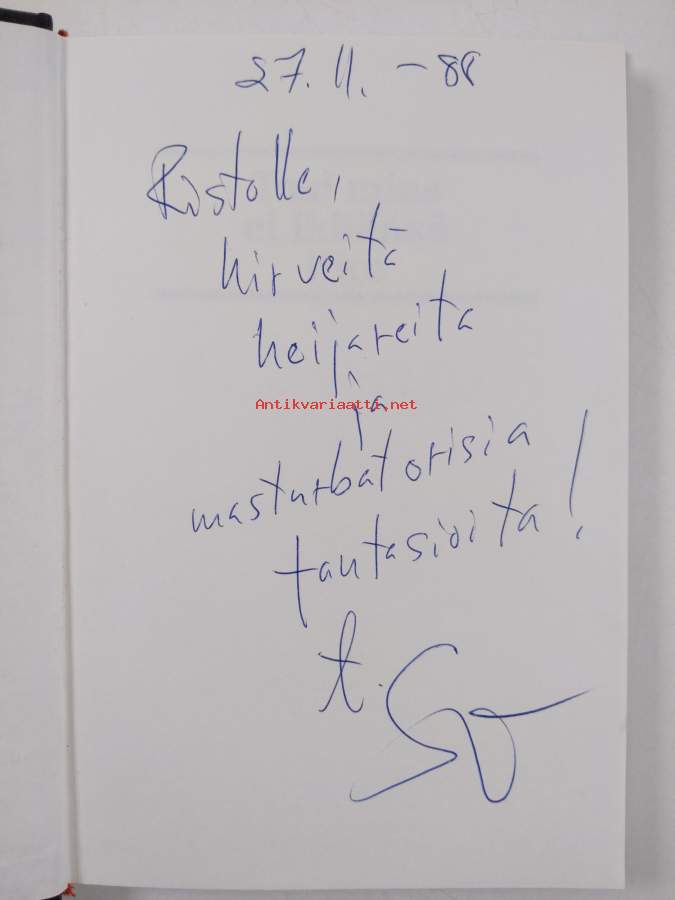 27.11. -88
Ristolle,
hirveitä
heijareita
ja
Antikvariaatti.net
masturbatorisia
fantasioita!
t.